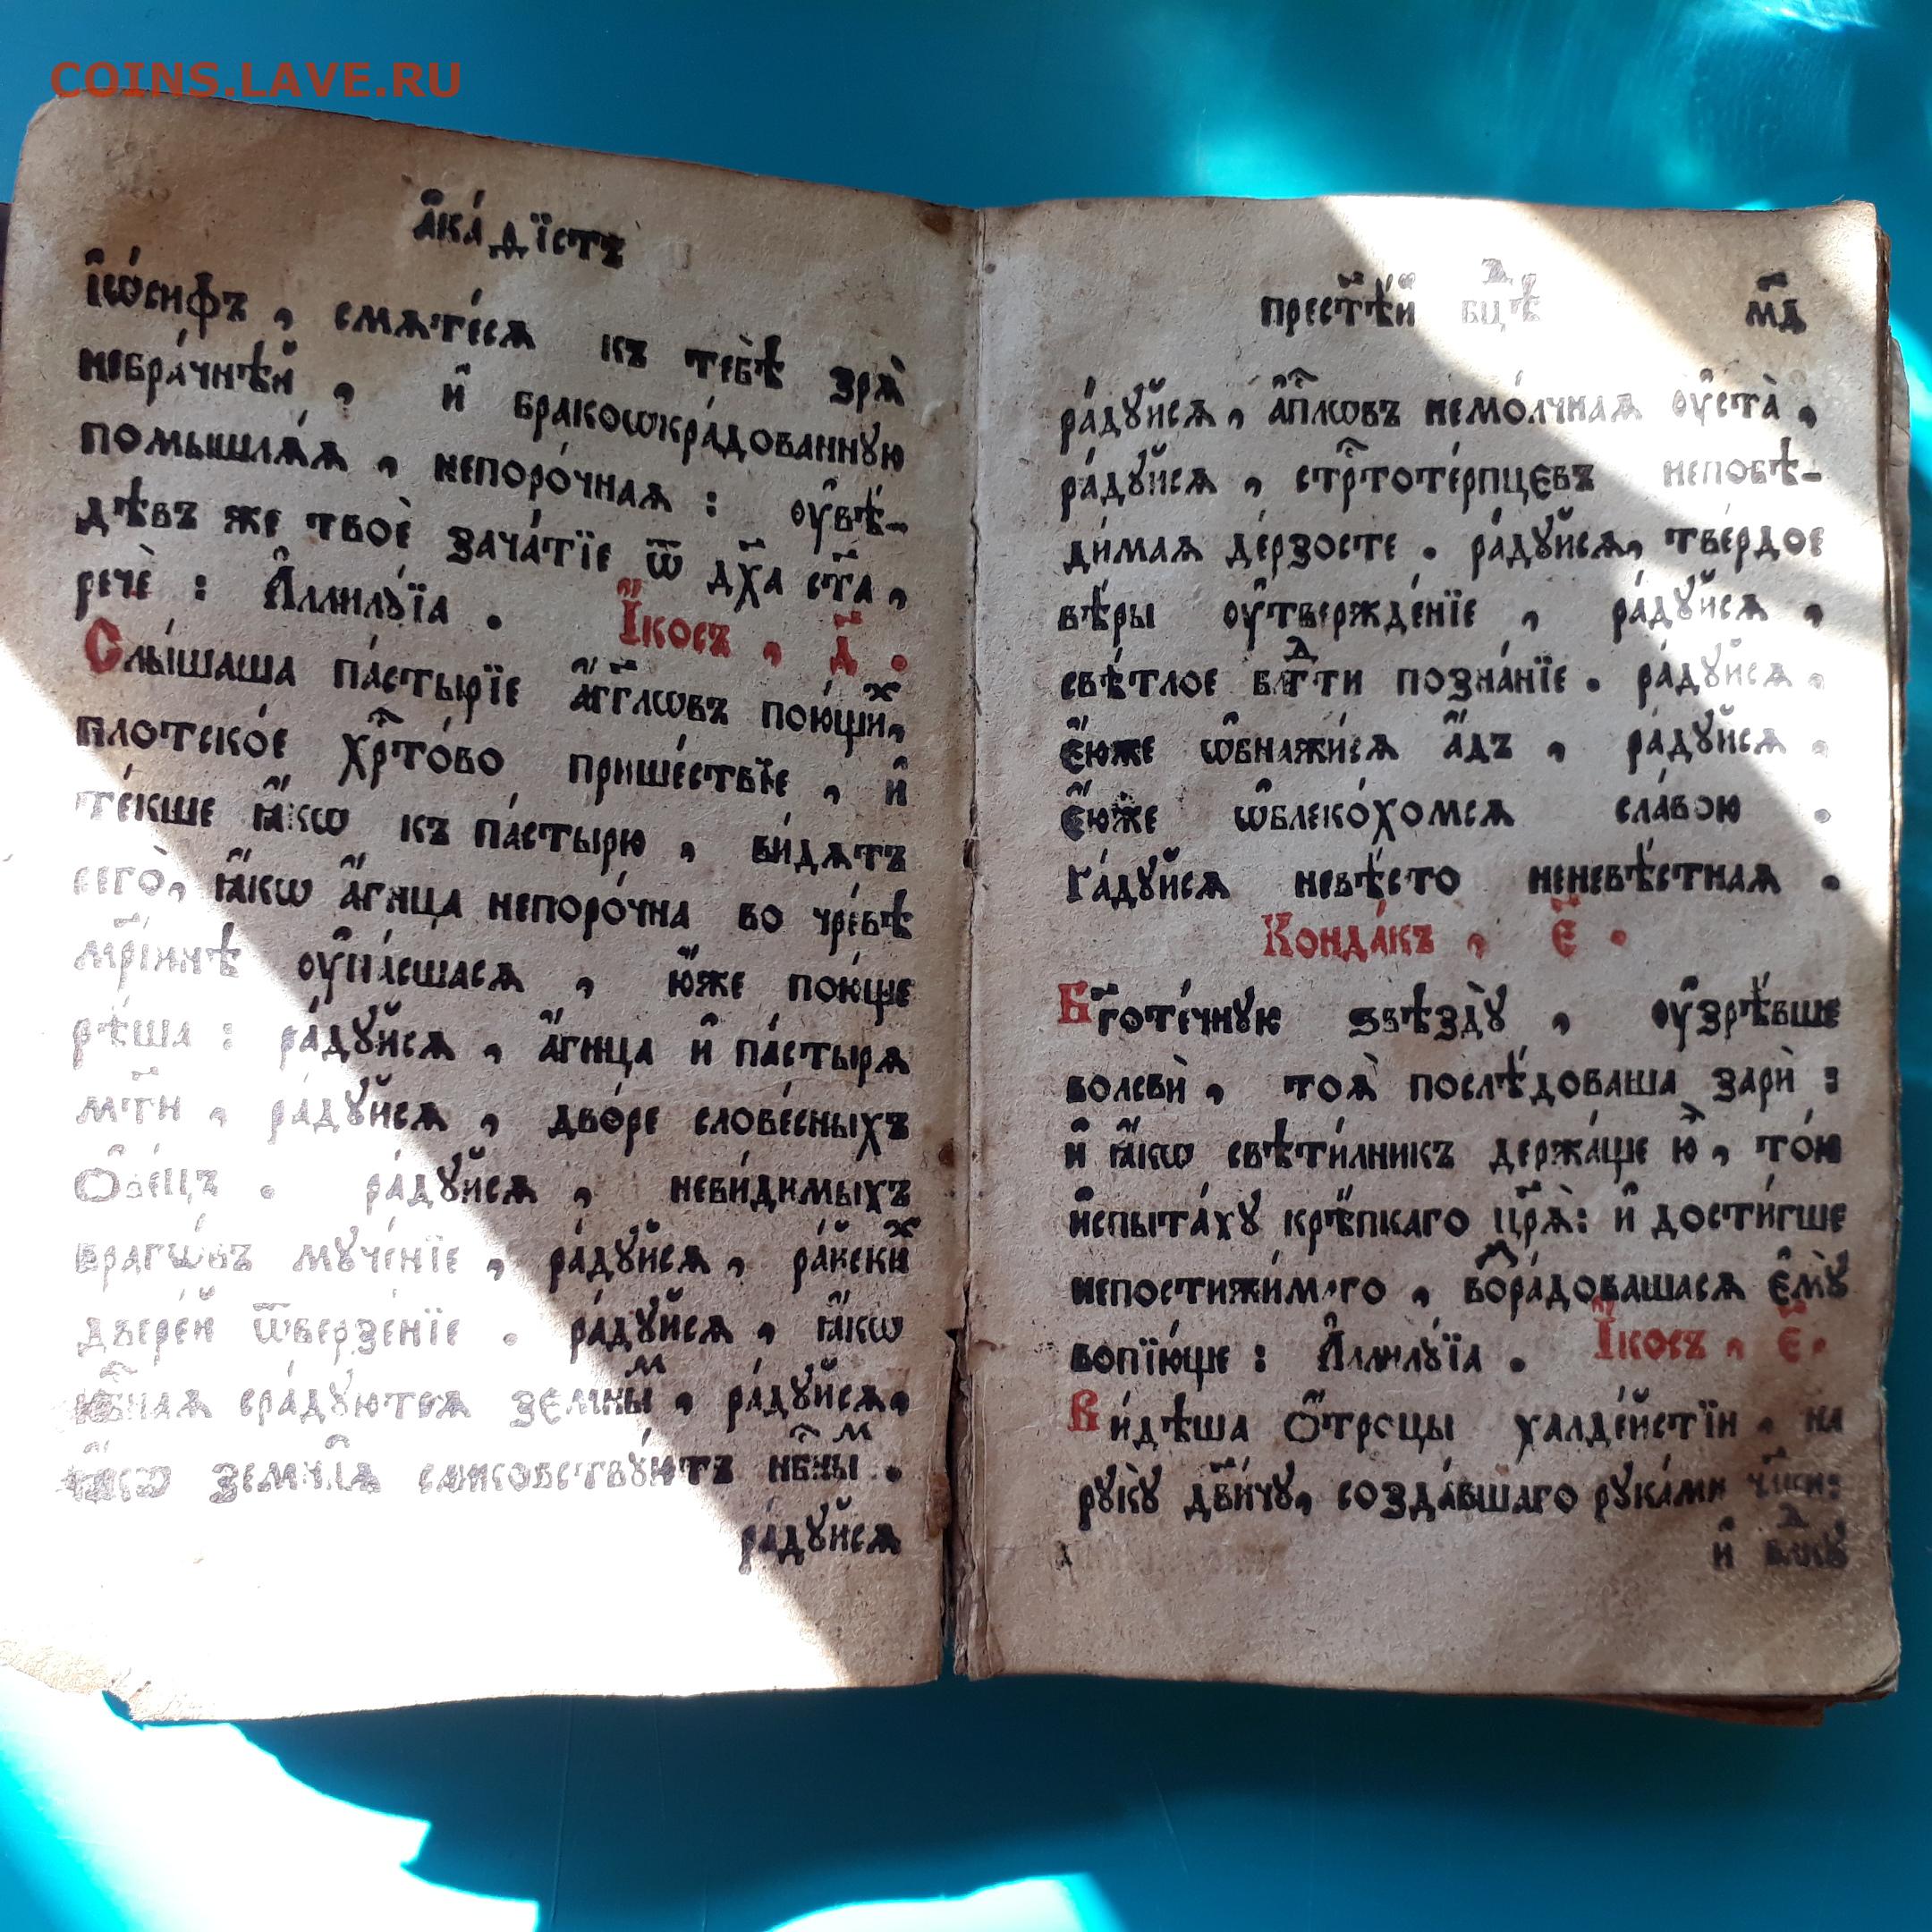 COINS.LAVE.RU
а҆ка́ѳїстъ
і҆ѡ́сифъ , смѧте́сѧ къ тебѣ̀ зрѧ̀
небра́чнѣй , и҆ бракоѡкра́дованную
помышлѧ́ѧ , непоро́чнаѧ : ᲂу҆вѣ́-
дѣвъ же твоѐ зача́тїе ѿ дх҃а ст҃а ,
речѐ : А҆ллилꙋ́їа . І҆́косъ , д҃ .
Слы́шаша па́стырїе а҆́гг҃лѡвъ пою́щиⷯ ,
плотско́е хрⷭ҇то́во прише́ствїе , и҆
те́кше ꙗ҆́кѡ къ па́стырю , ви́дѧтъ
сего̀ , ꙗ҆́кѡ а҆́гнца непоро́чна во чре́вѣ
мр҃і́инѣ ᲂу҆па́сшасѧ , ю҆́же пою́ще
рѣ́ша : ра́дꙋйсѧ , а҆́гнца и҆ па́стырѧ
мт҃и , ра́дꙋйсѧ , дво́ре слове́сныхъ
О҆ве́цъ . ра́дꙋйсѧ , неви́димыхъ
врагѡ́въ мꙋче́нїе , ра́дꙋйсѧ , ра́йскиⷯ
двере́й ѿверзе́нїе . ра́дꙋйсѧ , ꙗ҆́кѡ
нб҃наѧ сра́дꙋютсѧ земныⷨ , ра́дꙋйсѧ ,
ꙗ҆́кѡ земна́ѧ сликовствꙋ́ютъ нб҃ныⷨ .
ра́дꙋйсѧ
прест҃ѣ́й бцⷣѣ м҃д
ра́дꙋйсѧ , а҆пⷭ҇лѡвъ немо́лчнаѧ ᲂу҆ста̀ ,
ра́дꙋйсѧ , стрⷭ҇тоте́рпцєвъ непобѣ-
ди́маѧ де́рзосте . ра́дꙋйсѧ , тве́рдое
вѣ́ры ᲂу҆твержде́нїе , ра́дꙋйсѧ ,
свѣ́тлое блгⷣти позна́нїе . ра́дꙋйсѧ ,
є҆́юже ѡ҆бнажи́сѧ а҆́дъ , ра́дꙋйсѧ ,
є҆́юже ѡ҆блеко́хомсѧ сла́вою .
ра́дꙋйсѧ невѣ́сто неневѣ́стнаѧ .
Конда́къ , є҃ .
Бг҃оте́чнꙋю ѕвѣздꙋ̀ , ᲂу҆зрѣ́вше
волсвѝ , тоѧ̀ послѣ́доваша зарѝ :
и҆ ꙗ҆́кѡ свѣти́лникъ держа́ще ю҆̀ , то́ю
и҆спыта́хꙋ крѣ́пкаго цр҃ѧ̀ : и҆ дости́гше
непостижи́маго , возра́довашасѧ є҆мꙋ̀
вопїю́ще : А҆ллилꙋ́їа . І҆́косъ , є҃ .
Ви́дѣша О҆́троцы халде́йстїи , на
рꙋкꙋ̀ дв҃и́чꙋ , созда́вшаго рꙋка́ми
и҆ влⷣкꙋ